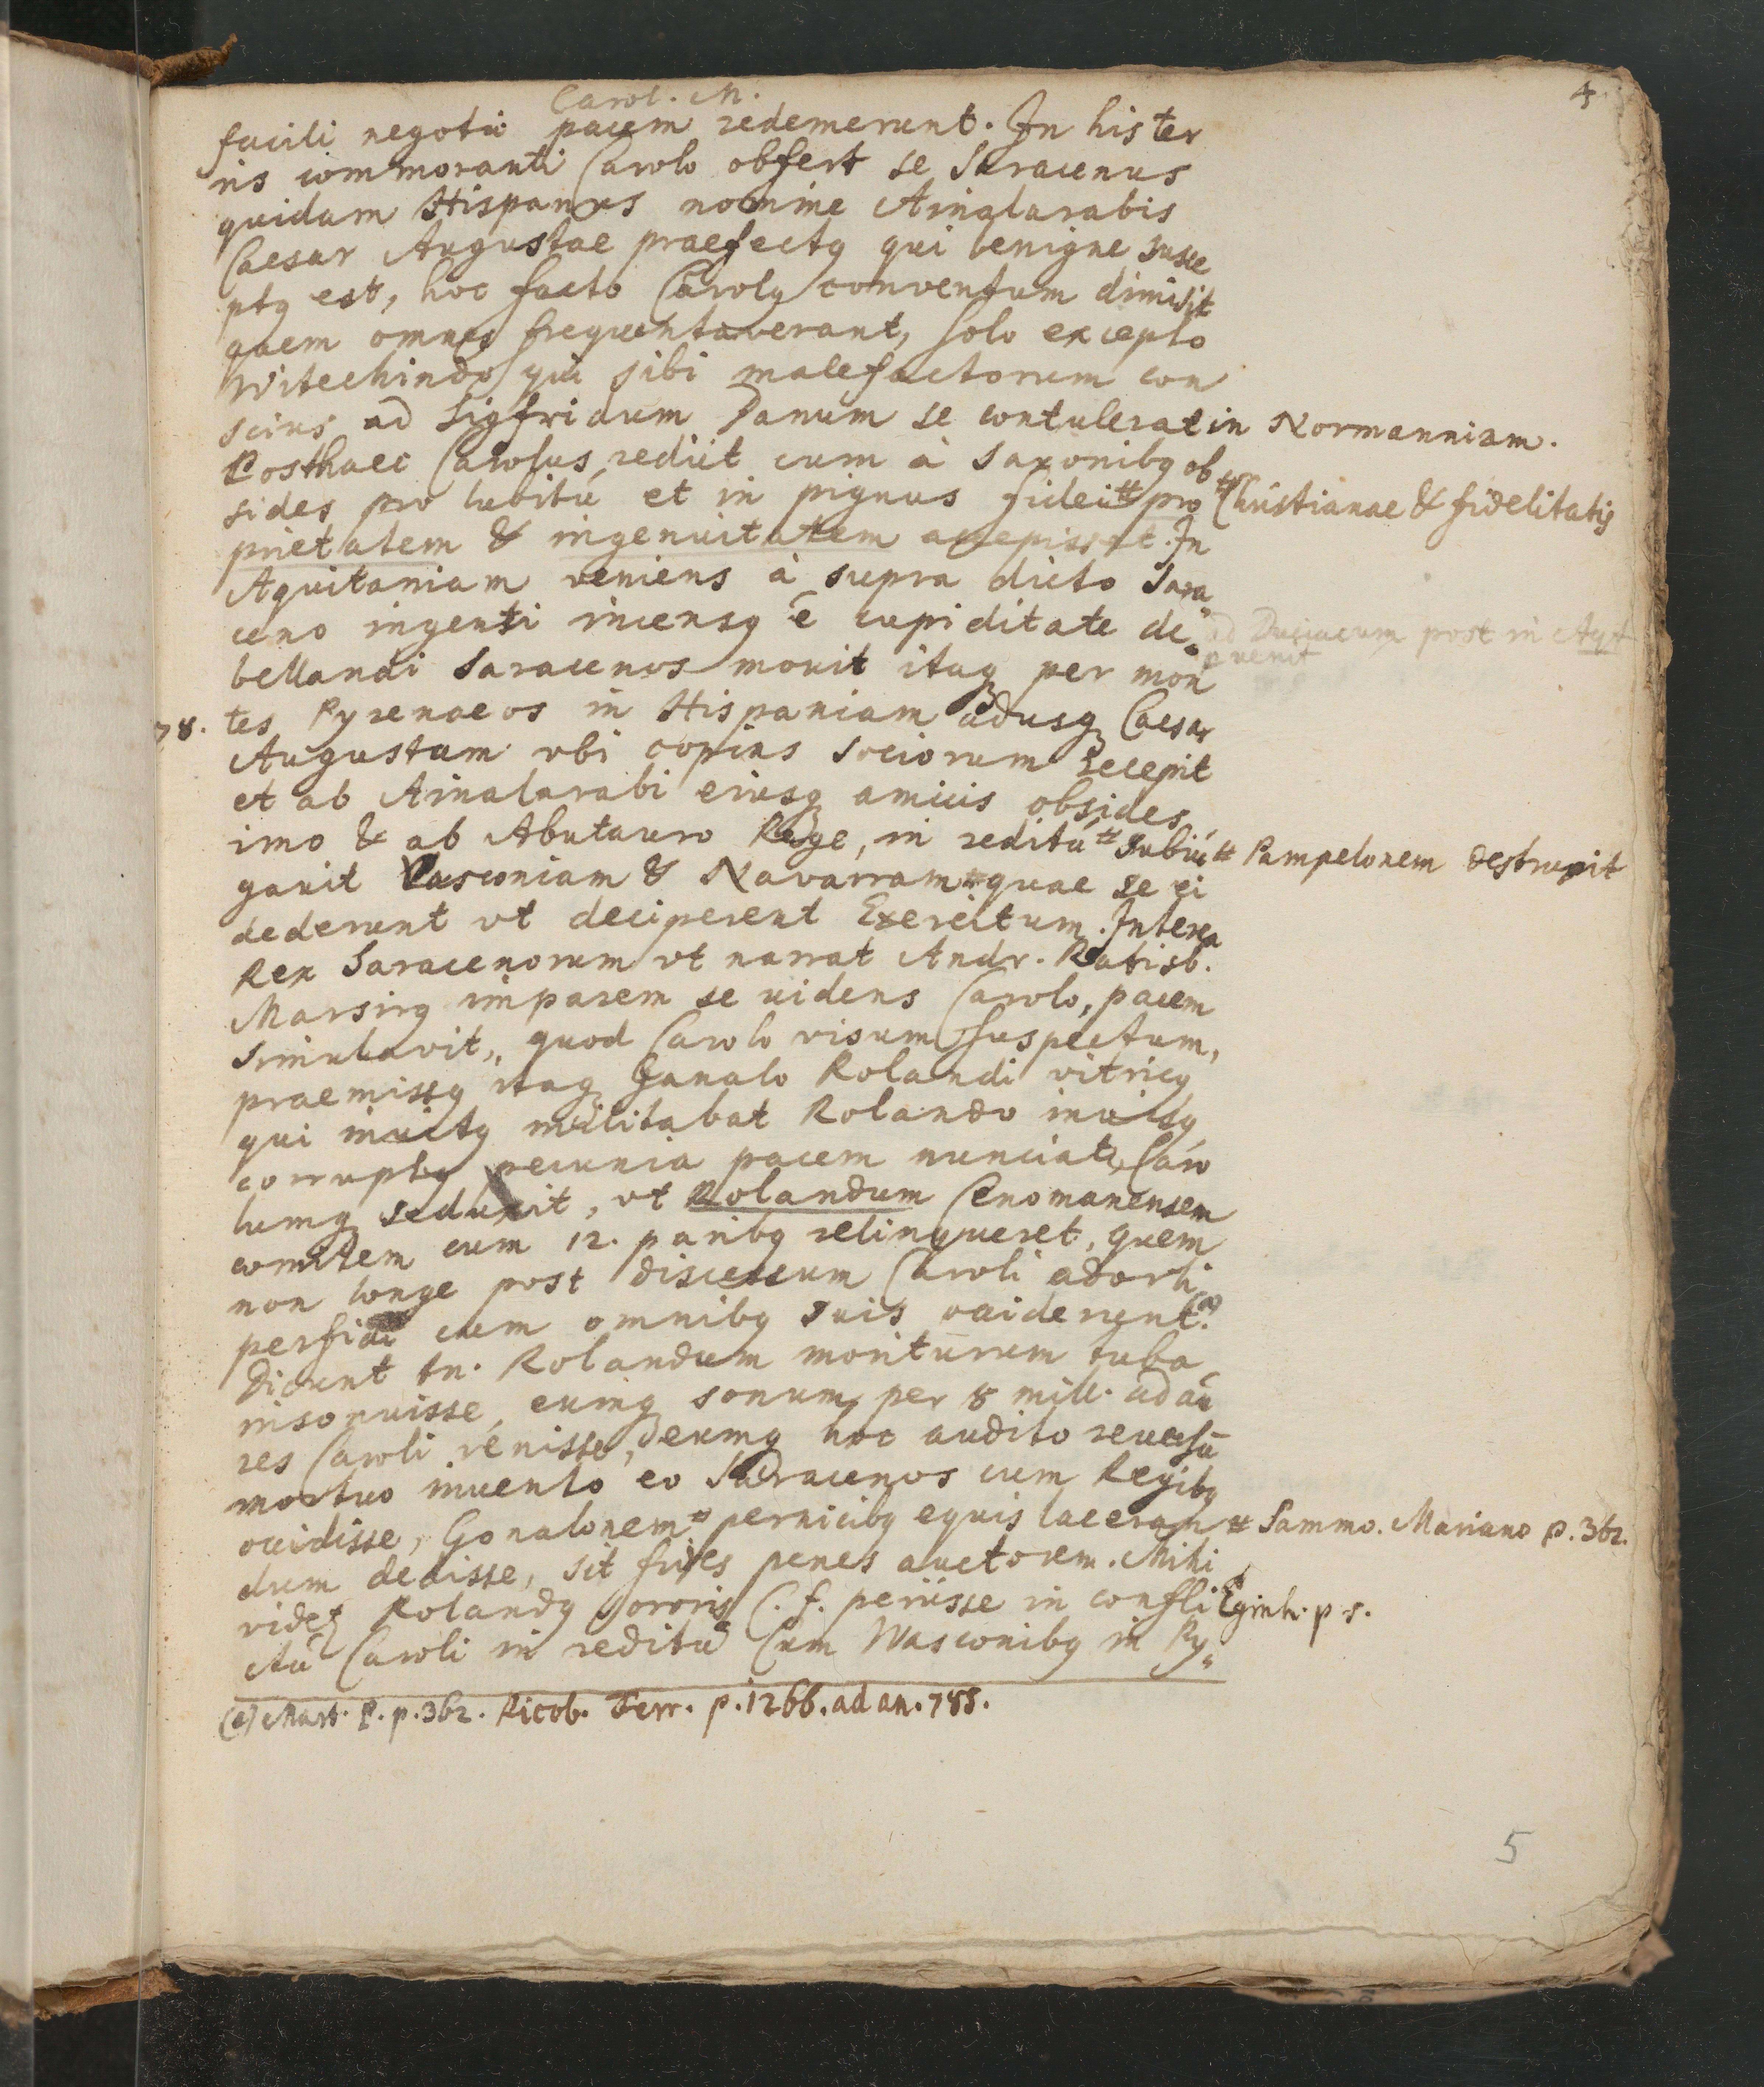 4
Carol. M.
facili negotio pacem redemerunt. In his ter
ris commoranti Carolo obfert se Saracenus
quidam Hispanus nomine Ainalarabis
Caesar Augustae praefectq qui benigne susce
ptq est, hoc facto Carolq conventum dimisit
quem omnes frequentaverant, solo excepto
Witechindo qui sibi malefactorum con
scius ad Sigfridum Danum se contulerat in Normanniam.
Posthaec Carolus rediit cum à Saxonibq ob
sides pro lubitu et in pignus fidei # pro # Christianae & fidelitatis
prietatem & ingenuitatem accepisset. In
Aquitaniam veniens à supra dicto Sara
ceno ingenti incensq ē cupiditate de
ad Duciacum post in Aqt
pvenit
bellandi Saracenos movit itaq per mon
78. tes Pyrenaeos in Hispaniam adusq Caesar
Augustam ubi copias sociorum recepit
et ab Ainalarabi eiusq amicis obsides
imo & ab Abutauro Rege, in reditu # Subiu # Pampelonem destruxit
gavit Vasconiam & Navarram quae se ei
dederunt ut deciperent Exercitum. Interea
Rex Saracenorum ut narrat Andr. Ratisb.
Marsirq imparem se videns Carolo, pacem
simulavit, quod Carolo visum suspectum,
praemissq itaq Ganalo Rolandi vitricq
qui invitq militabat Rolando invisq
corruptq pecunia pacem nunciat, Caro
lumq seduxit, ut Rolandum Cenomanensem
comitem cum 12. paribq relinqueret, quem
non longe post discessum Caroli adorti
perfidi cum omnibq suis occiderunt. (a)
Dicunt tn. Rolandum moriturum tuba
insonuisse, eumq sonum per 8 mill. ad au
res Caroli venisse, eumq hoc audito reversū
mortuo invento eo Saracenos cum Regibq
occidisse, Gonalonem # pernicibq equis laceran # Sammo. Mariano p. 362.
dum dedisse, sit fides penes auctorem. Mihi
videt Rolandq Sororis C. f. periisse in confli Eginh. p 5.
ctu Caroli in reditu cum Wasconibq in Py
(a) Mart. P. p. 362. Ricob. Ferr. p. 1266. ad an. 788.
5